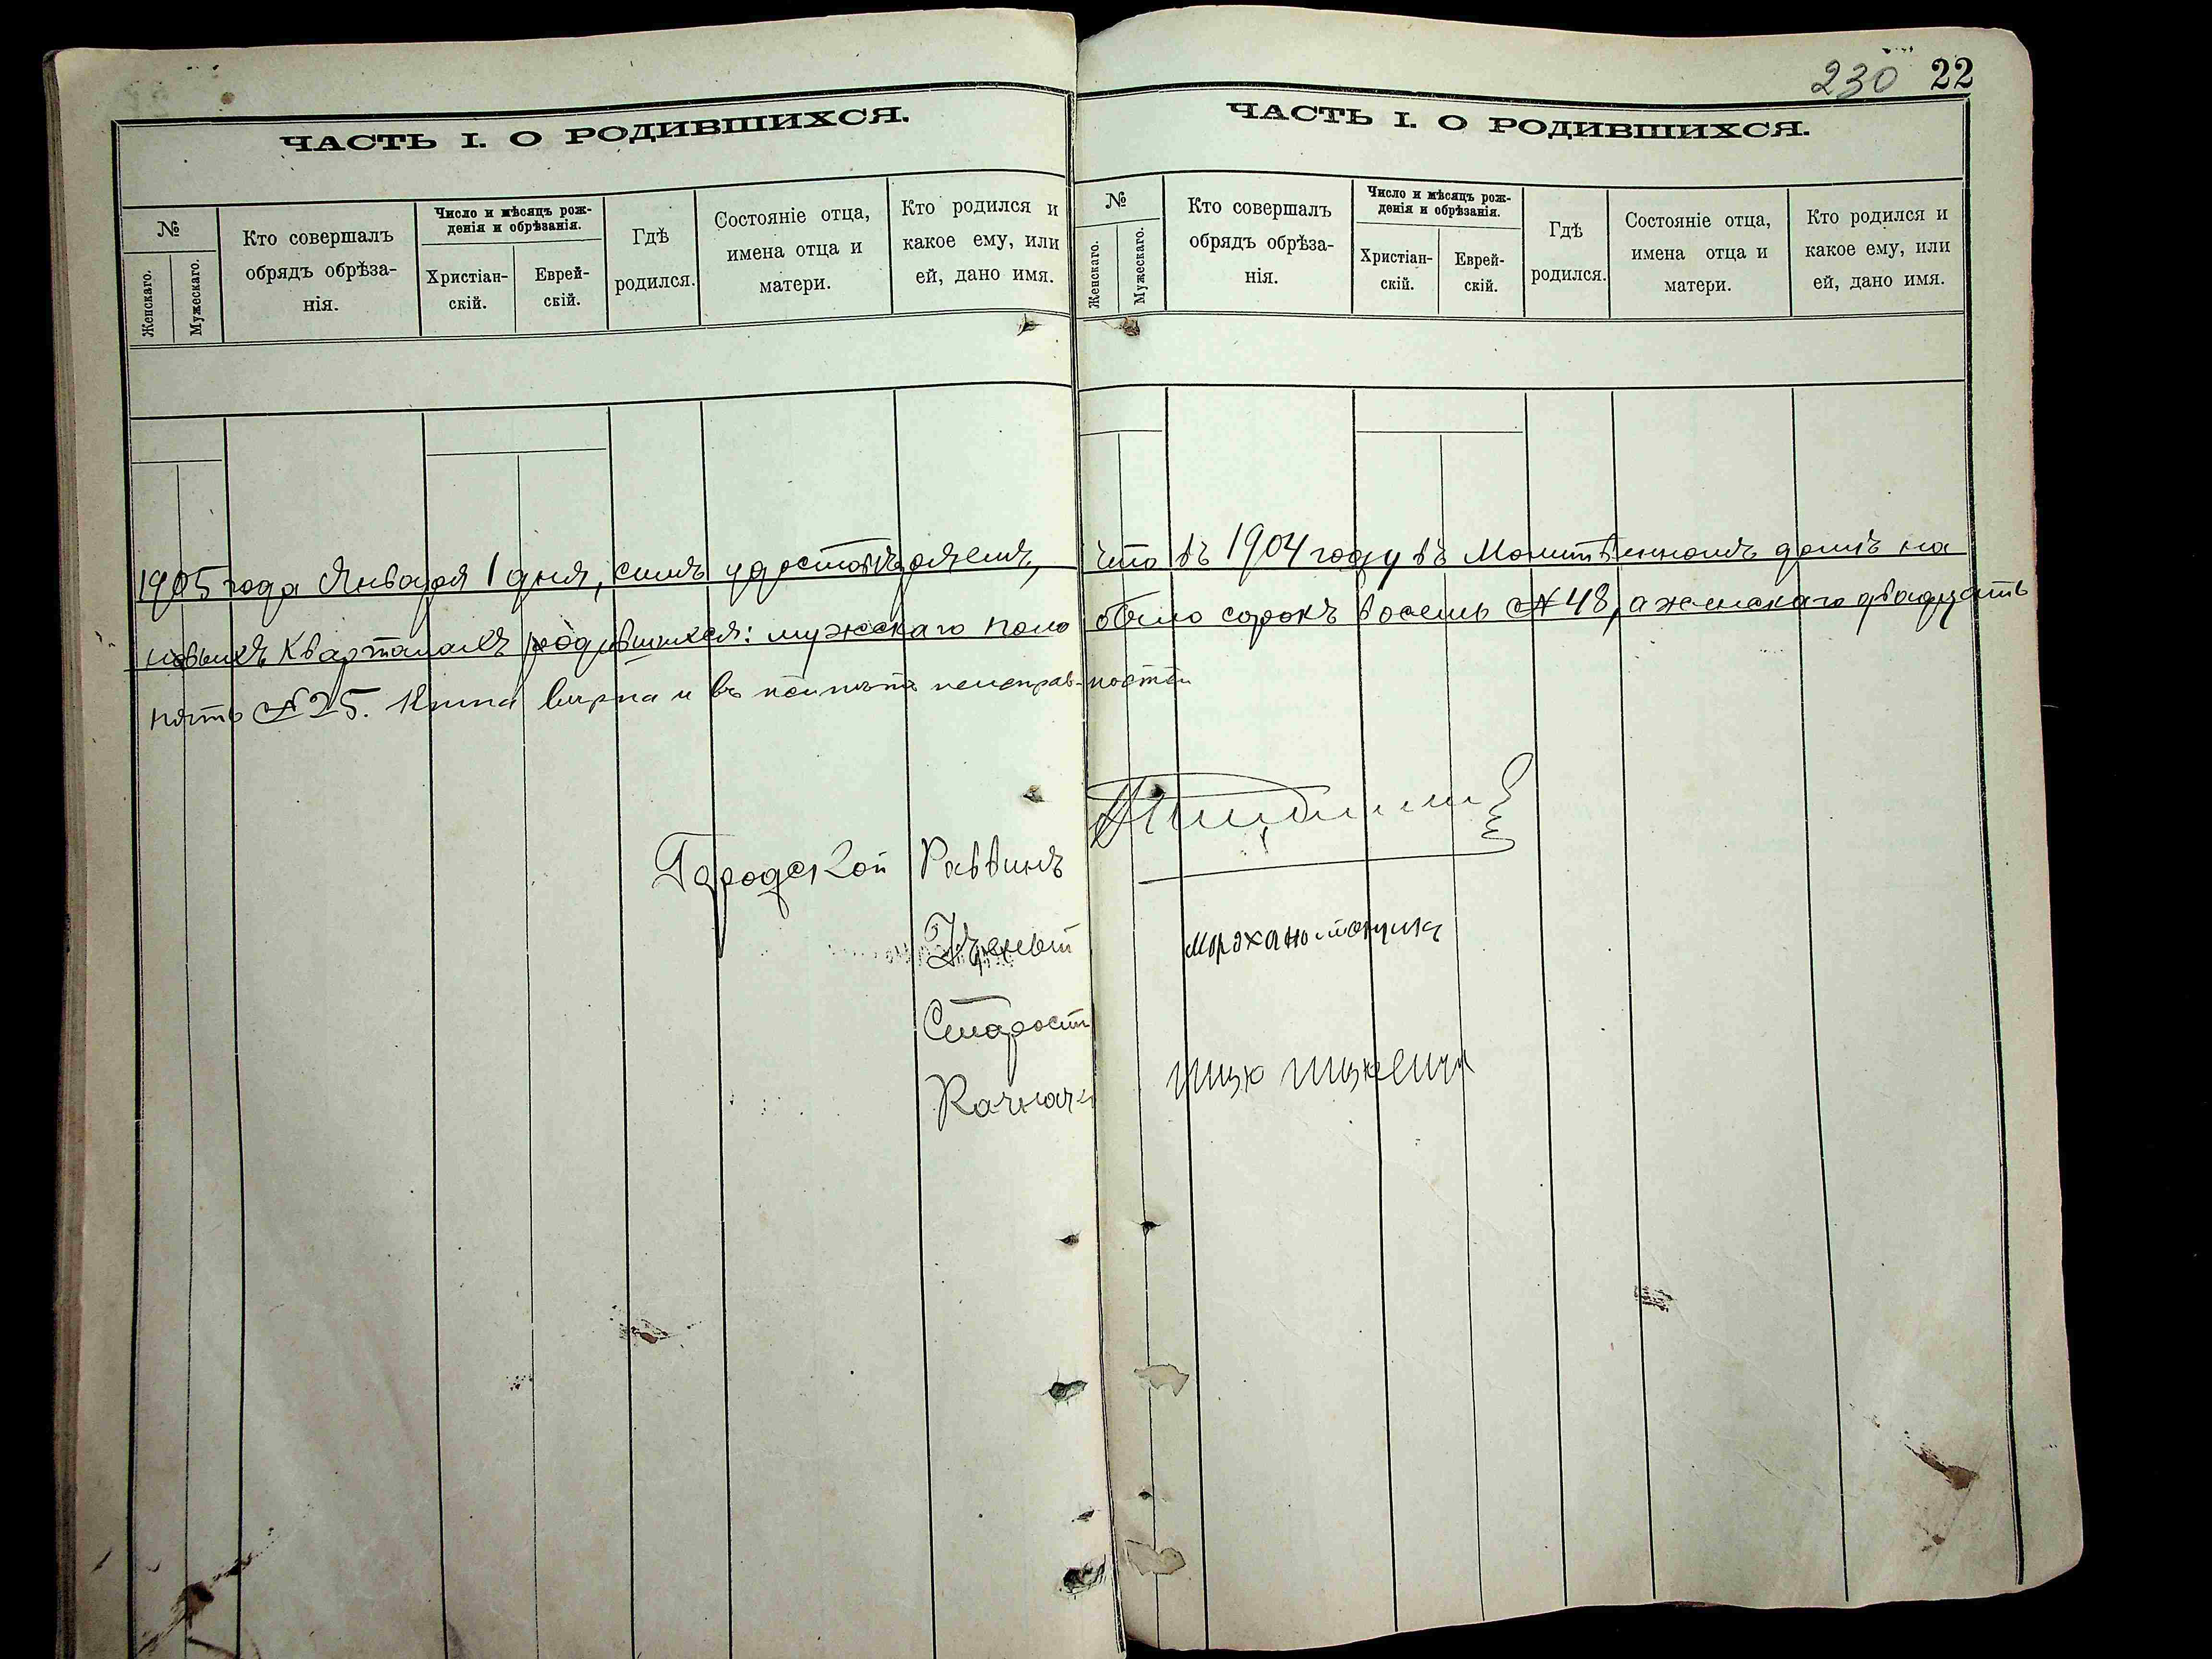 230 22
ЧАСТЬ I. О РОДИВШИХСЯ.
№
Женскаго.
Мужескаго.
Кто совершалъ
обрядъ обрѣза-
нія.
Число и мѣсяцъ рож-
денія и обрѣзанія.
Христіан-
скій.
Еврей-
скій.
Гдѣ
родился.
Состояніе отца,
имена отца и
матери.
Кто родился и
какое ему, или
ей, дано имя.
ЧАСТЬ I. О РОДИВШИХСЯ.
№
Женскаго.
Мужескаго.
Кто совершалъ
обрядъ обрѣза-
нія.
Число и мѣсяцъ рож-
денія и обрѣзанія.
Христіан-
скій.
Еврей-
скій.
Гдѣ
родился.
Состояніе отца,
имена отца и
матери.
Кто родился и
какое ему, или
ей, дано имя.
1905 года Января 1 дня, симъ удостовѣряемъ, что въ 1904 году въ Молитвенномъ домѣ на
новыхъ Кварталахъ родившихся: мужскаго пола было сорокъ восемь № 48, а женскаго двадцать
пять № 25. Книга вѣрна и въ ней нѣтъ неисправностей
Городской Раввинъ
Ученый
Старост
Казначе Ицко Ицкевич